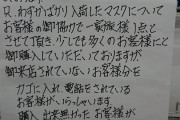 只、わずかばかり入荷したマスクについて
お客様の御協力で一家族様1点と
させて頂き、少しでも多くのお客様に
御購入していただいておりますが
御来店されていないお客様分を
カゴに入れ電話をされている
お客様がいらっしゃいます。
購入出来なかったお客様が